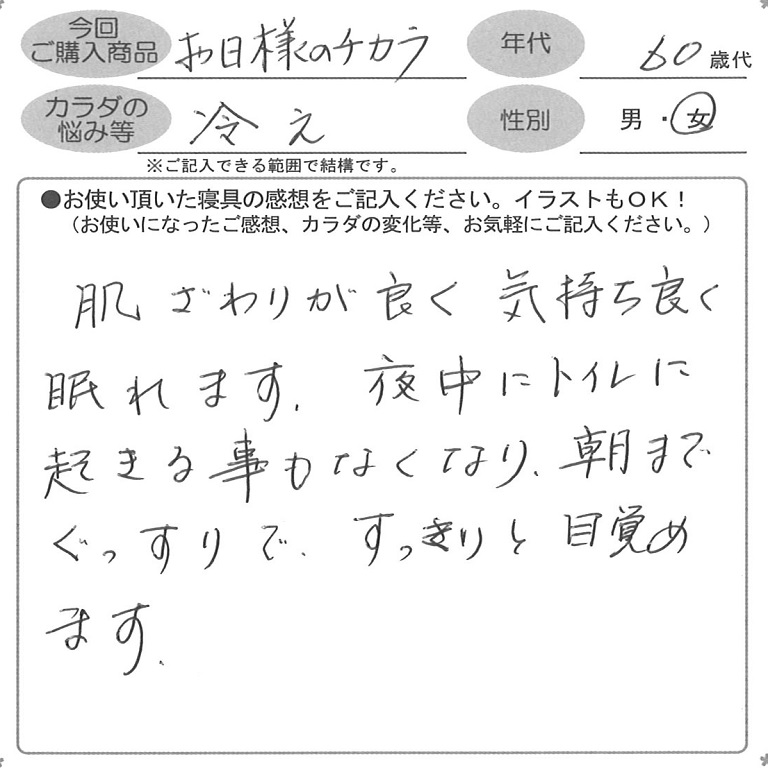 今回 ご購入商品 お日様のチカラ 年代 60 歳代
カラダの 悩み等 冷え 性別 男・女
※ご記入できる範囲で結構です。
●お使い頂いた寝具の感想をご記入ください。イラストもOK！
（お使いになったご感想、カラダの変化等、お気軽にご記入ください。）
肌ざわりが良く 気持ち良く
眠れます。夜中にトイレに
起きる事もなくなり、朝まで
ぐっすりで、すっきりと目覚め
ます。